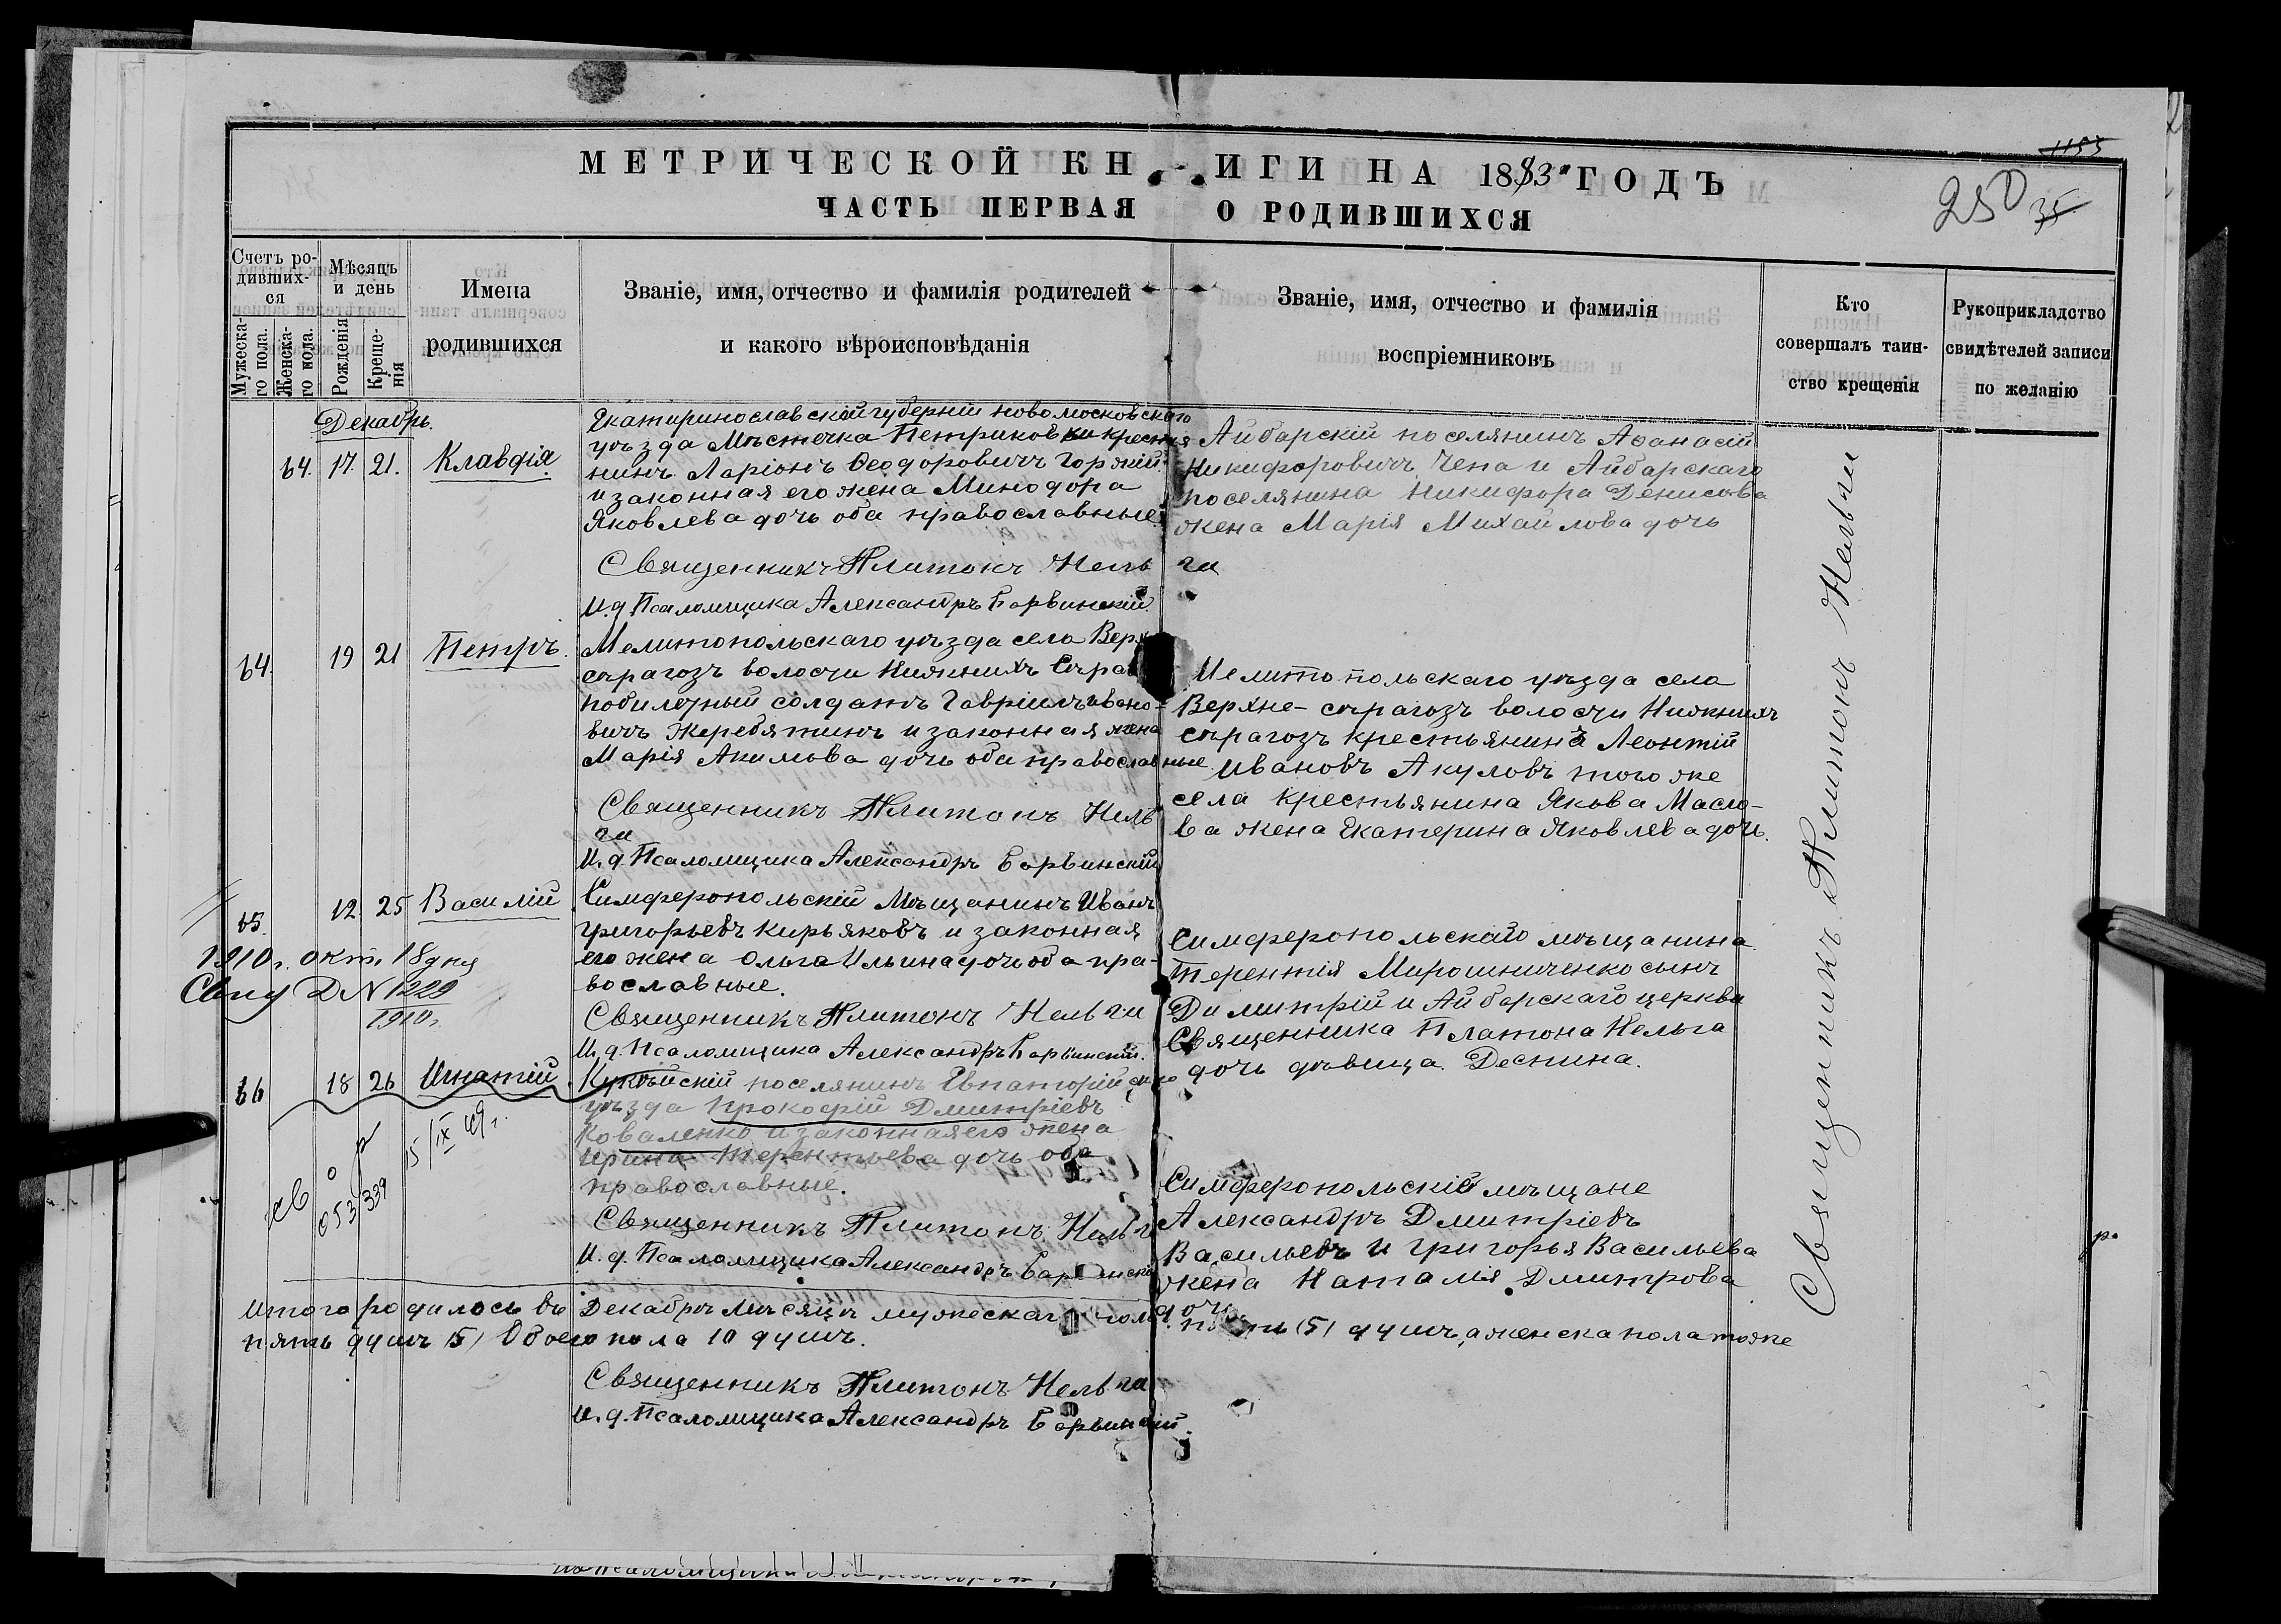 1153
МЕТРИЧЕСКОЙ КНИГИ НА 1883 ГОДЪ
250 35
ЧАСТЬ ПЕРВАЯ О РОДИВШИХСЯ
Счетъ ро-
дивших-
ся
Мужеска-
го пола.
Женска-
го пола.
Мѣсяцъ
и день
Рожденія
Креще-
нія
Имена
родившихся
Званіе, имя, отчество и фамилія родителей
и какого вѣроисповѣданія
Званіе, имя, отчество и фамилія
воспріемниковъ
Кто
совершалъ таин-
ство крещенія
Рукоприкладство
свидѣтелей записи
по желанію
Декабрь.
64. 17. 21. Клавдія
Екатеринославской губерніи Новомосковскаго
уѣзда Мѣстечка Петриковки крестья
нинъ Ларіонъ Ѳеодоровичъ Горякій
и законная его жена Минодора
Яковлева дочь оба православные.
Айбарскій поселянинъ Аѳанасій
Никифоровичъ Чепа и Айбарскаго
поселянина Никифора Денисова
жена Марія Михайлова дочь
Священникъ Платонъ Нельга
И. д. Псаломщика Александръ Барвинскій
64. 19 21 Петръ.
Мелитопольскаго уѣзда села Верхне
сѣрагозъ волости Нижнихъ Сѣрагозъ
побилетный солдатъ Гавріилъ Ивано-
вичъ Жеребятинъ и законная жена
Марія Акимова дочь оба православные.
Мелитопольскаго уѣзда села
Верхне-сѣрагозъ волости Нижнихъ
сѣрагозъ крестьянинъ Леонтій
Ивановъ Акуловъ того же
села крестьянина Якова Масло-
ва жена Екатерина Яковлева дочь.
Священникъ Платонъ Нель
га
И. д. Псаломщика Александръ Барвинскій
65. 12. 25 Василій
Симферопольскій Мѣщанинъ Иванъ
Григорьевъ Кирьяковъ и законная
его жена Ольга Ильина дочь оба пра-
вославные.
Симферопольскаго мѣщанина
Терентія Мирошниченко сынъ
Димитрій и Айбарскаго церкви
Священника Платона Нельга
дочь дѣвица Деспина.
1910 г. окт. 18 дня
Свид N 1229
1910 г.
Священникъ Платонъ Нельга
И. д. Псаломщика Александръ Барвинскій.
66 18 26 Игнатій
поселянинъ Евпаторійскаго
уѣзда Прокофій Дмитріевъ
Коваленко и законная его жена
Ирина Терентьева дочь оба
православные.
Симферопольскіе мѣщане
Александръ Дмитріевъ
Васильевъ и Григорья Васильева
жена Наталія Дмитрова
дочь
15/IX 49 г.
053339
Священникъ Платонъ Нельга
И. д. Псаломщика Александръ Барвинскій
Итого родилось въ Декабрѣ Мѣсяцѣ мужескаго пола пять (5) душъ, а женска пола тоже
пять душъ (5) Обоего пола 10 душъ.
Священникъ Платонъ Нельга
И. д. Псаломщика Александръ Барвинскій.
Священникъ Платонъ Нельга